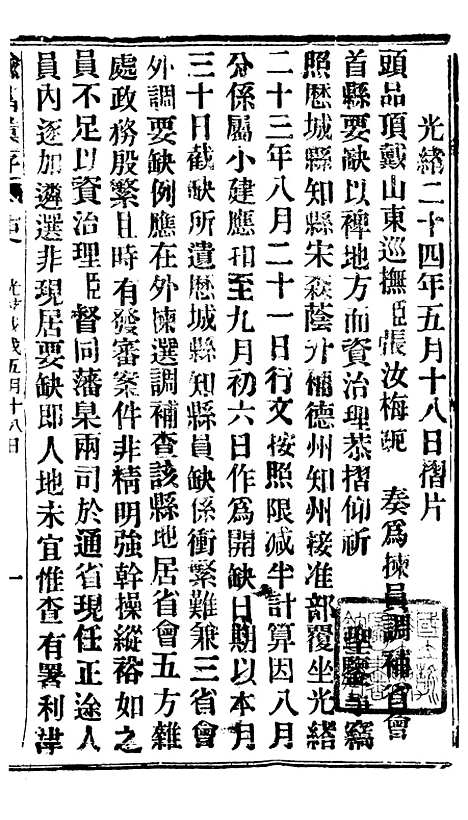 光緒二十四年五月十八日摺片
頭品頂戴山東巡撫臣張汝梅跪 奏爲揀員調補省會
首縣要缺以裨地方而資治理恭摺仰祈 聖鑒事竊
照歷城縣知縣宋森蔭升補德州知州接准部覆坐光緒
二十三年八月二十一日行文按照限減半計算因八月
分係屬小建應扣至九月初六日作爲開缺日期以本月
三十日截缺所遺歷城縣知縣員缺係衝繁難兼三省會
外調要缺例應在外揀選調補查該縣地居省會五方雜
處政務殷繁且時有發審案件非精明強幹操縱裕如之
員不足以資治理臣督同藩臬兩司於通省現任正途人
員內逐加遴選非現居要缺即人地未宜惟查有署利津
五月十八日 一